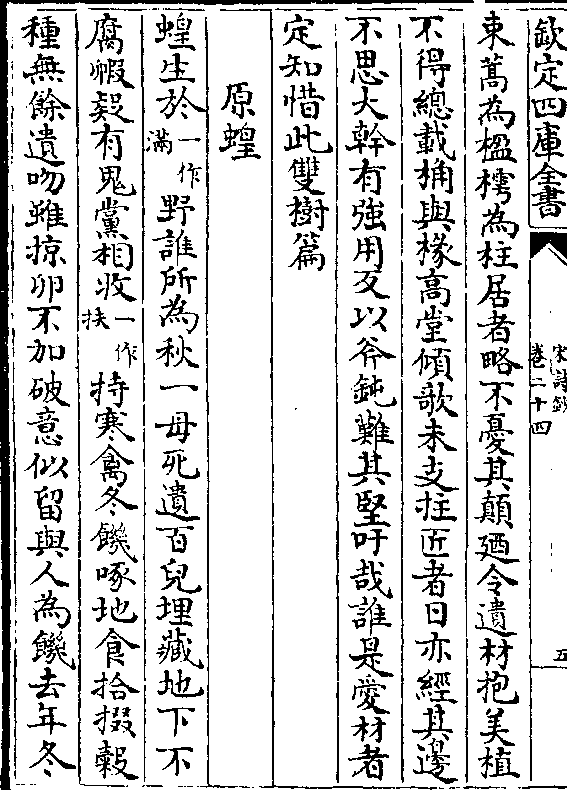 欽定四庫全書
宋詩鈔
卷二十四
五
束蒿為楹樗為柱居者略不憂其顛廼令遺材抱美植
不得總載桷與椽高堂傾欹未支拄匠者日亦經其邊
不思大幹有強用反以斧鈍難其堅吁哉誰是愛材者
定知惜此雙樹篇
原蝗
蝗生於一作滿野誰所為秋一母死遺百兒埋藏地下不
腐㡊疑有鬼黨相收一作扶持寒禽冬饑啄地食拾掇穀
種無餘遺吻雖掠卵不加破意似留與人為饑去年冬